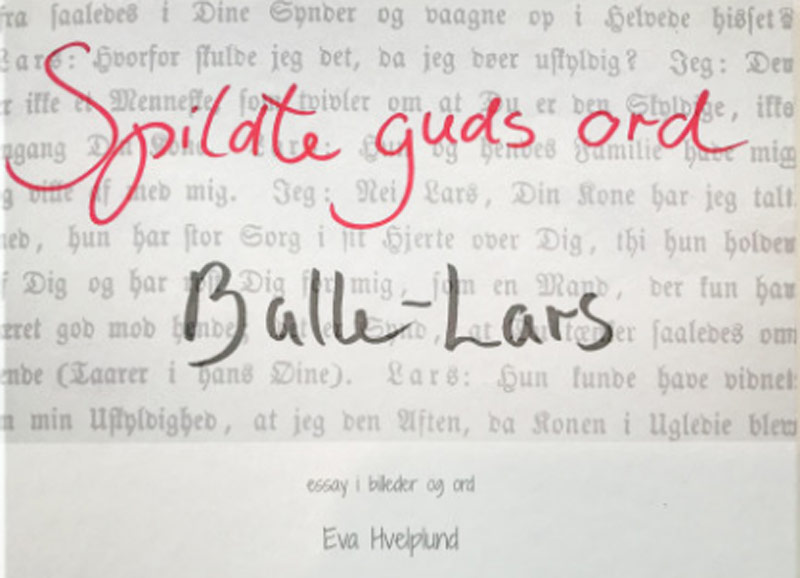 fra saaledes i Dine Synder og vaagne op i Helvede hisset?
Lars: Hvorfor skulde jeg det, da jeg døer uskyldig? Jeg: Der
r ikke et Menneske, som tvivler om at Du er den Skyldige, ikke
Spildte guds ord
ngang Din Kone. Lars: Hun og hendes Familie have mig
g ville af med mig. Jeg: Nei Lars, Din Kone har jeg talt
med, hun har stor Sorg i sit Hjerte over Dig, thi hun holder
f Dig og har Dig for mig, som en Mand, der kun har
Balle-Lars
æret god mod hende; er Synd, at saaledes om
ende (Taarer i hans Øine). Lars: Hun kunde have vidnet
m min Uskyldighed, at jeg den Aften, da Konen i Ugledie blev
essay i billeder og ord
Eva Hvelplund